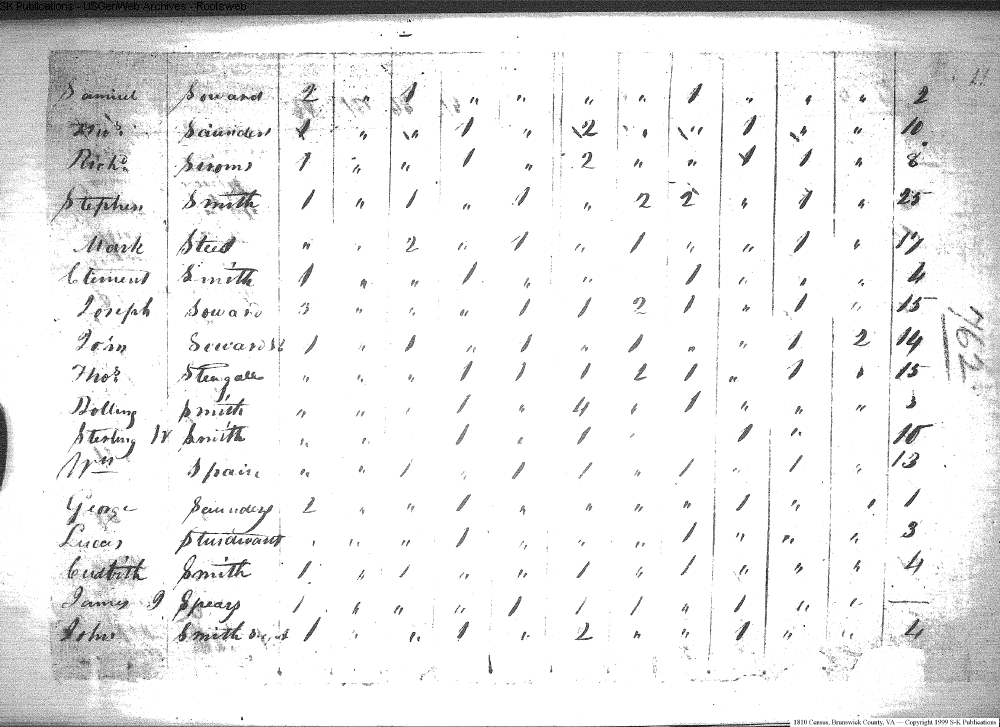 SK Publications - USGenWeb Archives - Rootsweb
Samuel Soward 2 " 1 " " " " 1 " " " 2
Saunders 1 " " 1 " 2 " " 1 " " 10
Richd Simms 1 " " 1 " 2 " " 1 1 " 8
Stephen Smith 1 " 1 " 1 " 2 2 " 1 " 25
Mark Steed " " 2 " 1 " 1 " " 1 " 17
Clement Smith 1 " " 1 " " 1 " " " 4
Joseph Soward 3 " " " 1 1 2 1 " 1 " 15
John Seward 1 " 1 " 1 " 1 " " 1 2 14
Thos Steagall " " " 1 1 1 2 1 " 1 " 15
Bolling Smith " " " 1 " 4 " 1 " " " 3
Sterling Smith " " 1 " 1 " 1 " 10
Wm Spain " " 1 " 1 1 " 1 " 1 " 13
George Saunders 2 " " 1 " " " " 1 " " 1
Lucas Sturdivant " " " 1 " " " 1 " " " 3
Cudbith Smith 1 " 1 " " 1 " 1 " " " 4
James D Spears 1 " " " 1 1 1 " 1 " " —
John Smith 1 " " 1 " 2 " " 1 " " 4
762
1810 Census, Brunswick County, VA — Copyright 1999 S-K Publications